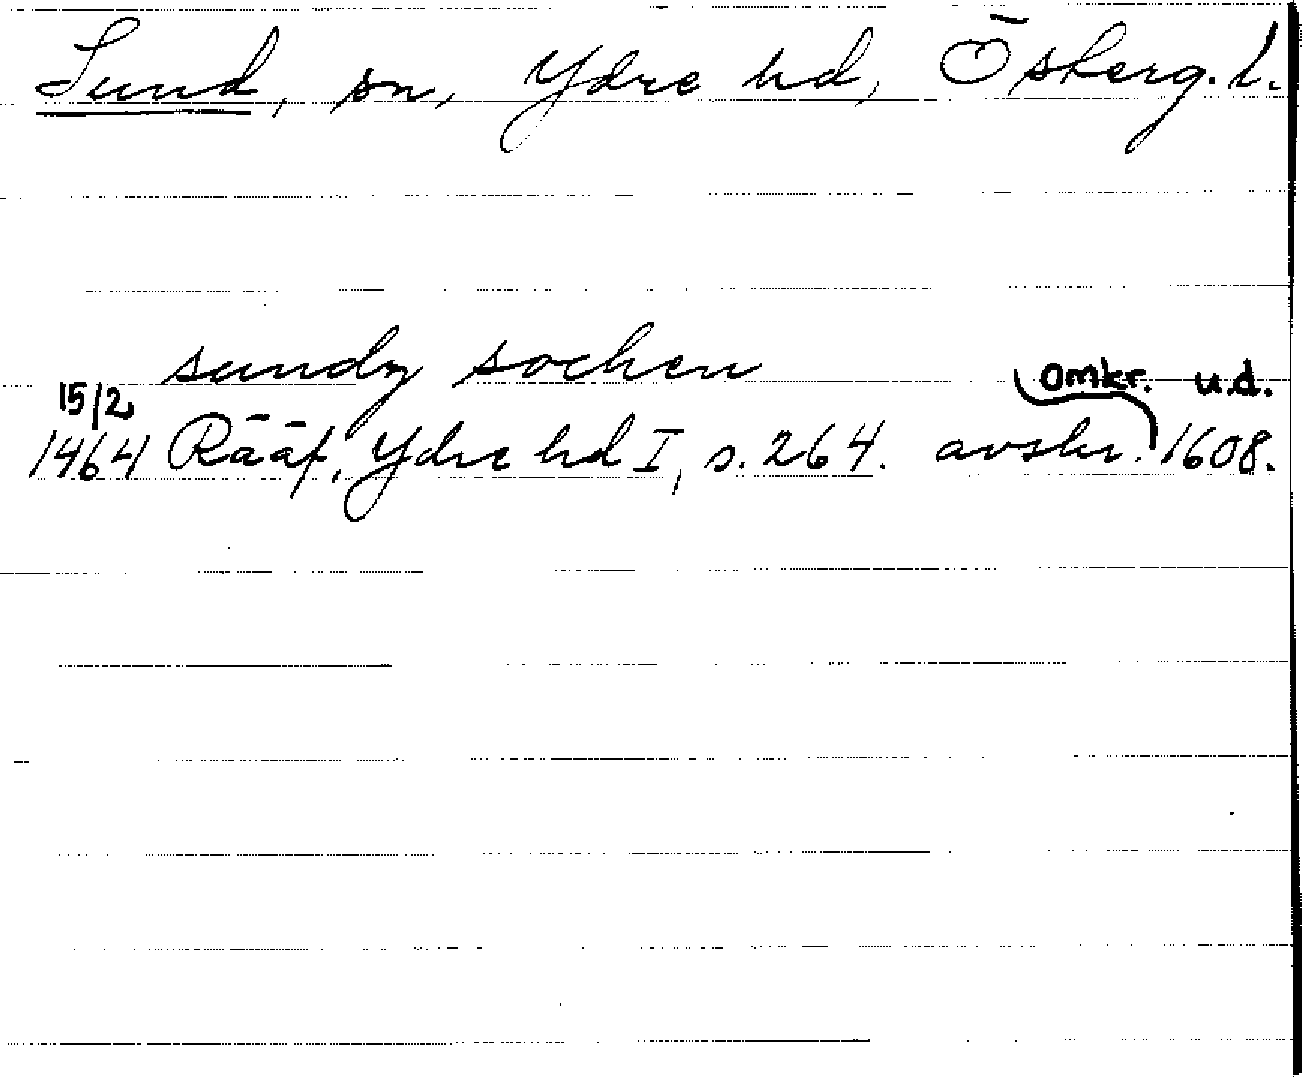 Sund, sn, Ydre hd, Ösberg. l.
sundz sochen
15/2 omkr. u.d.
1464 Rääf, Ydre hd I, s. 264. avskr. 1608.